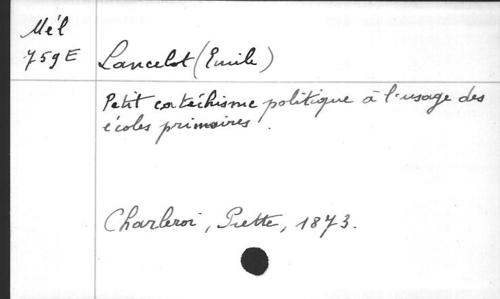 Mél
759E
Lancelot (Emile)
Petit catéchisme politique à l'usage des
écoles primaires.
Charleroi, Piette, 1873.